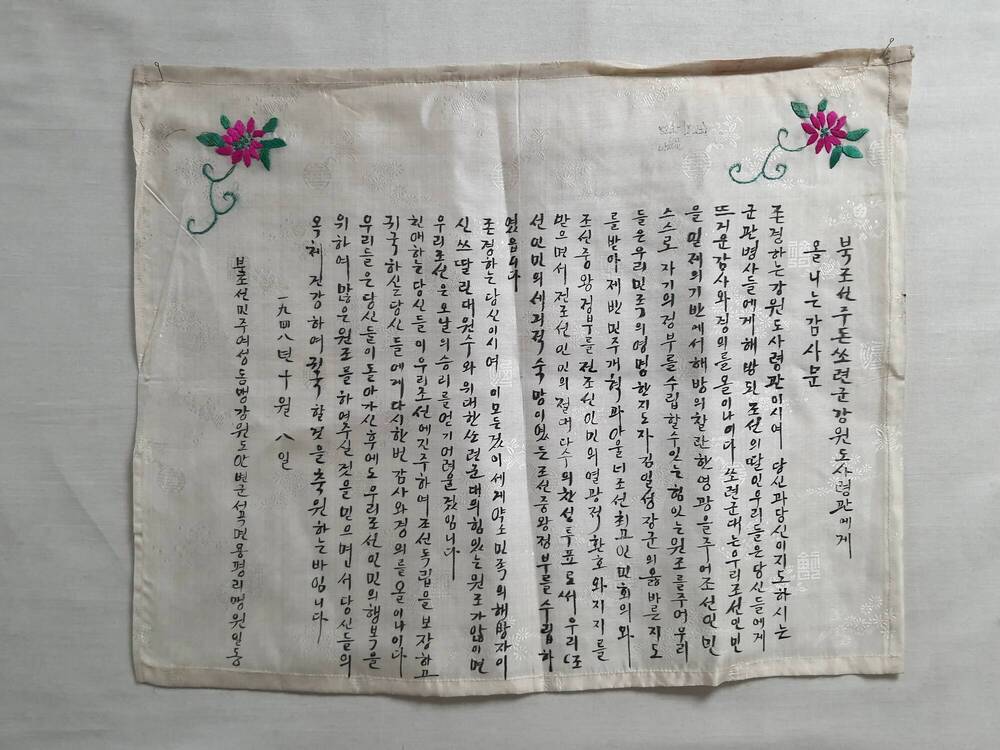 북조선주둔쏘련군강원도사령관에게
올니는감사문
존경하는강원도사령관이시여 당신과당신이지도하시는
군관병사들에게해방된조선의딸인우리들은당신들에게
뜨거운감사와경의를올이나이다 쏘련군대는우리조선인민
을일제의기반에서해방의찰란한영광을주어조선인민
스스로자기의정부를수립할수있는힘있는원조를주어우리
들은우리민족의영명한지도자김일성장군의옳바른지도
를받아제반민주개혁과아울너조선최고인민회의와
조선중앙정부를전조선인민의열광적환호와지지를
받으면서전조선인민의절대다수의찬성투표로써우리조
선인민의세기적숙망이였든조선중앙정부를수립하
였읍니다
존경하는당신이시여 이모든것이세계약소민족의해방자이
신쓰딸린대원수와위대한쏘련군대의힘있는원조가않이면
우리조선은오날의승리를얻기어려울것입니다
친애하는당신들이우리조선에진주하여조선독립을보장하고
귀국하실당신들에게다시한번감사와경의를올이나이다
우리들은당신들이돌아가신후에도우리조선인민의행복을
위하여많은원조를하여주실것을믿으면서당신들의
옥체건강하여귀국할것을축원하는바입니다
一九四八년十월八일
북조선민주여성동맹강원도안변군석교면용평리맹원일동